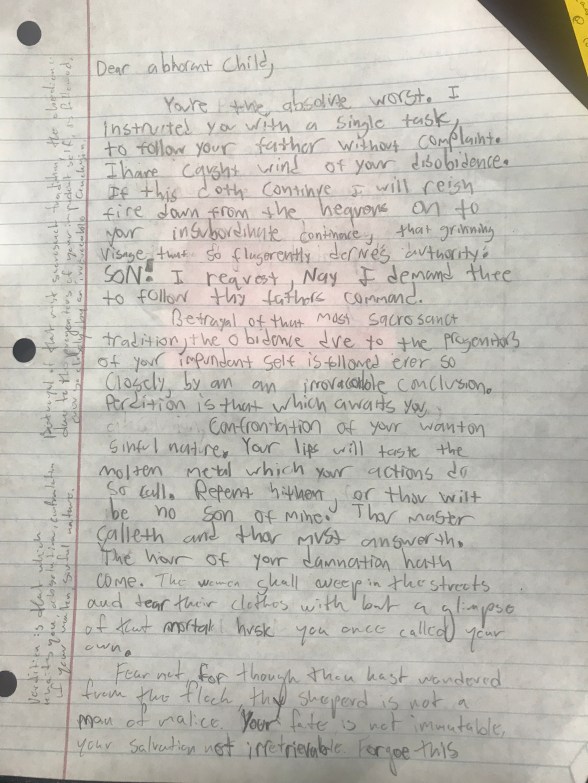 Dear abhorant Child,
Youre the absolute worst. I
instructed you with a single task,
to follow your father without complaint.
I have caught wind of your disobidence.
If this doth continue I will reign
fire down from the heavens on to
your insubordinate continace, that grinning
visage that so flagerently
SON! I request, Nay I demand thee
to follow thy fathers command.
Betrayal of that most sacrosanct
tradition, the obidence due to the progenitors
of your impundant self is followed ever so
closely, by an an irrovacable conclusion.
Perdition is that which awaits you,
Confrontation of your wanton
sinful nature. Your lips will taste the
molten metal which your actions do
so call. Repent or thou wilt
be no son of mine. Thou master
calleth and thou must answerth.
The hour of your damnation hath
come. The women shall weep in the streets
and tear their clothes with but a glimpse
of that mortal husk you once called your
own.
Fear not, for though thou hast wandered
from the flock, thy sheperd is not a
man of malice. Your fate is not immutable,
your salvation not irretrievable. Forgoe this
Betrayal of that most sacrosanct tradition, the
due to the progenitors of your self is followed
Perdition is that which
awaits you
of your wanton, sinful nature.